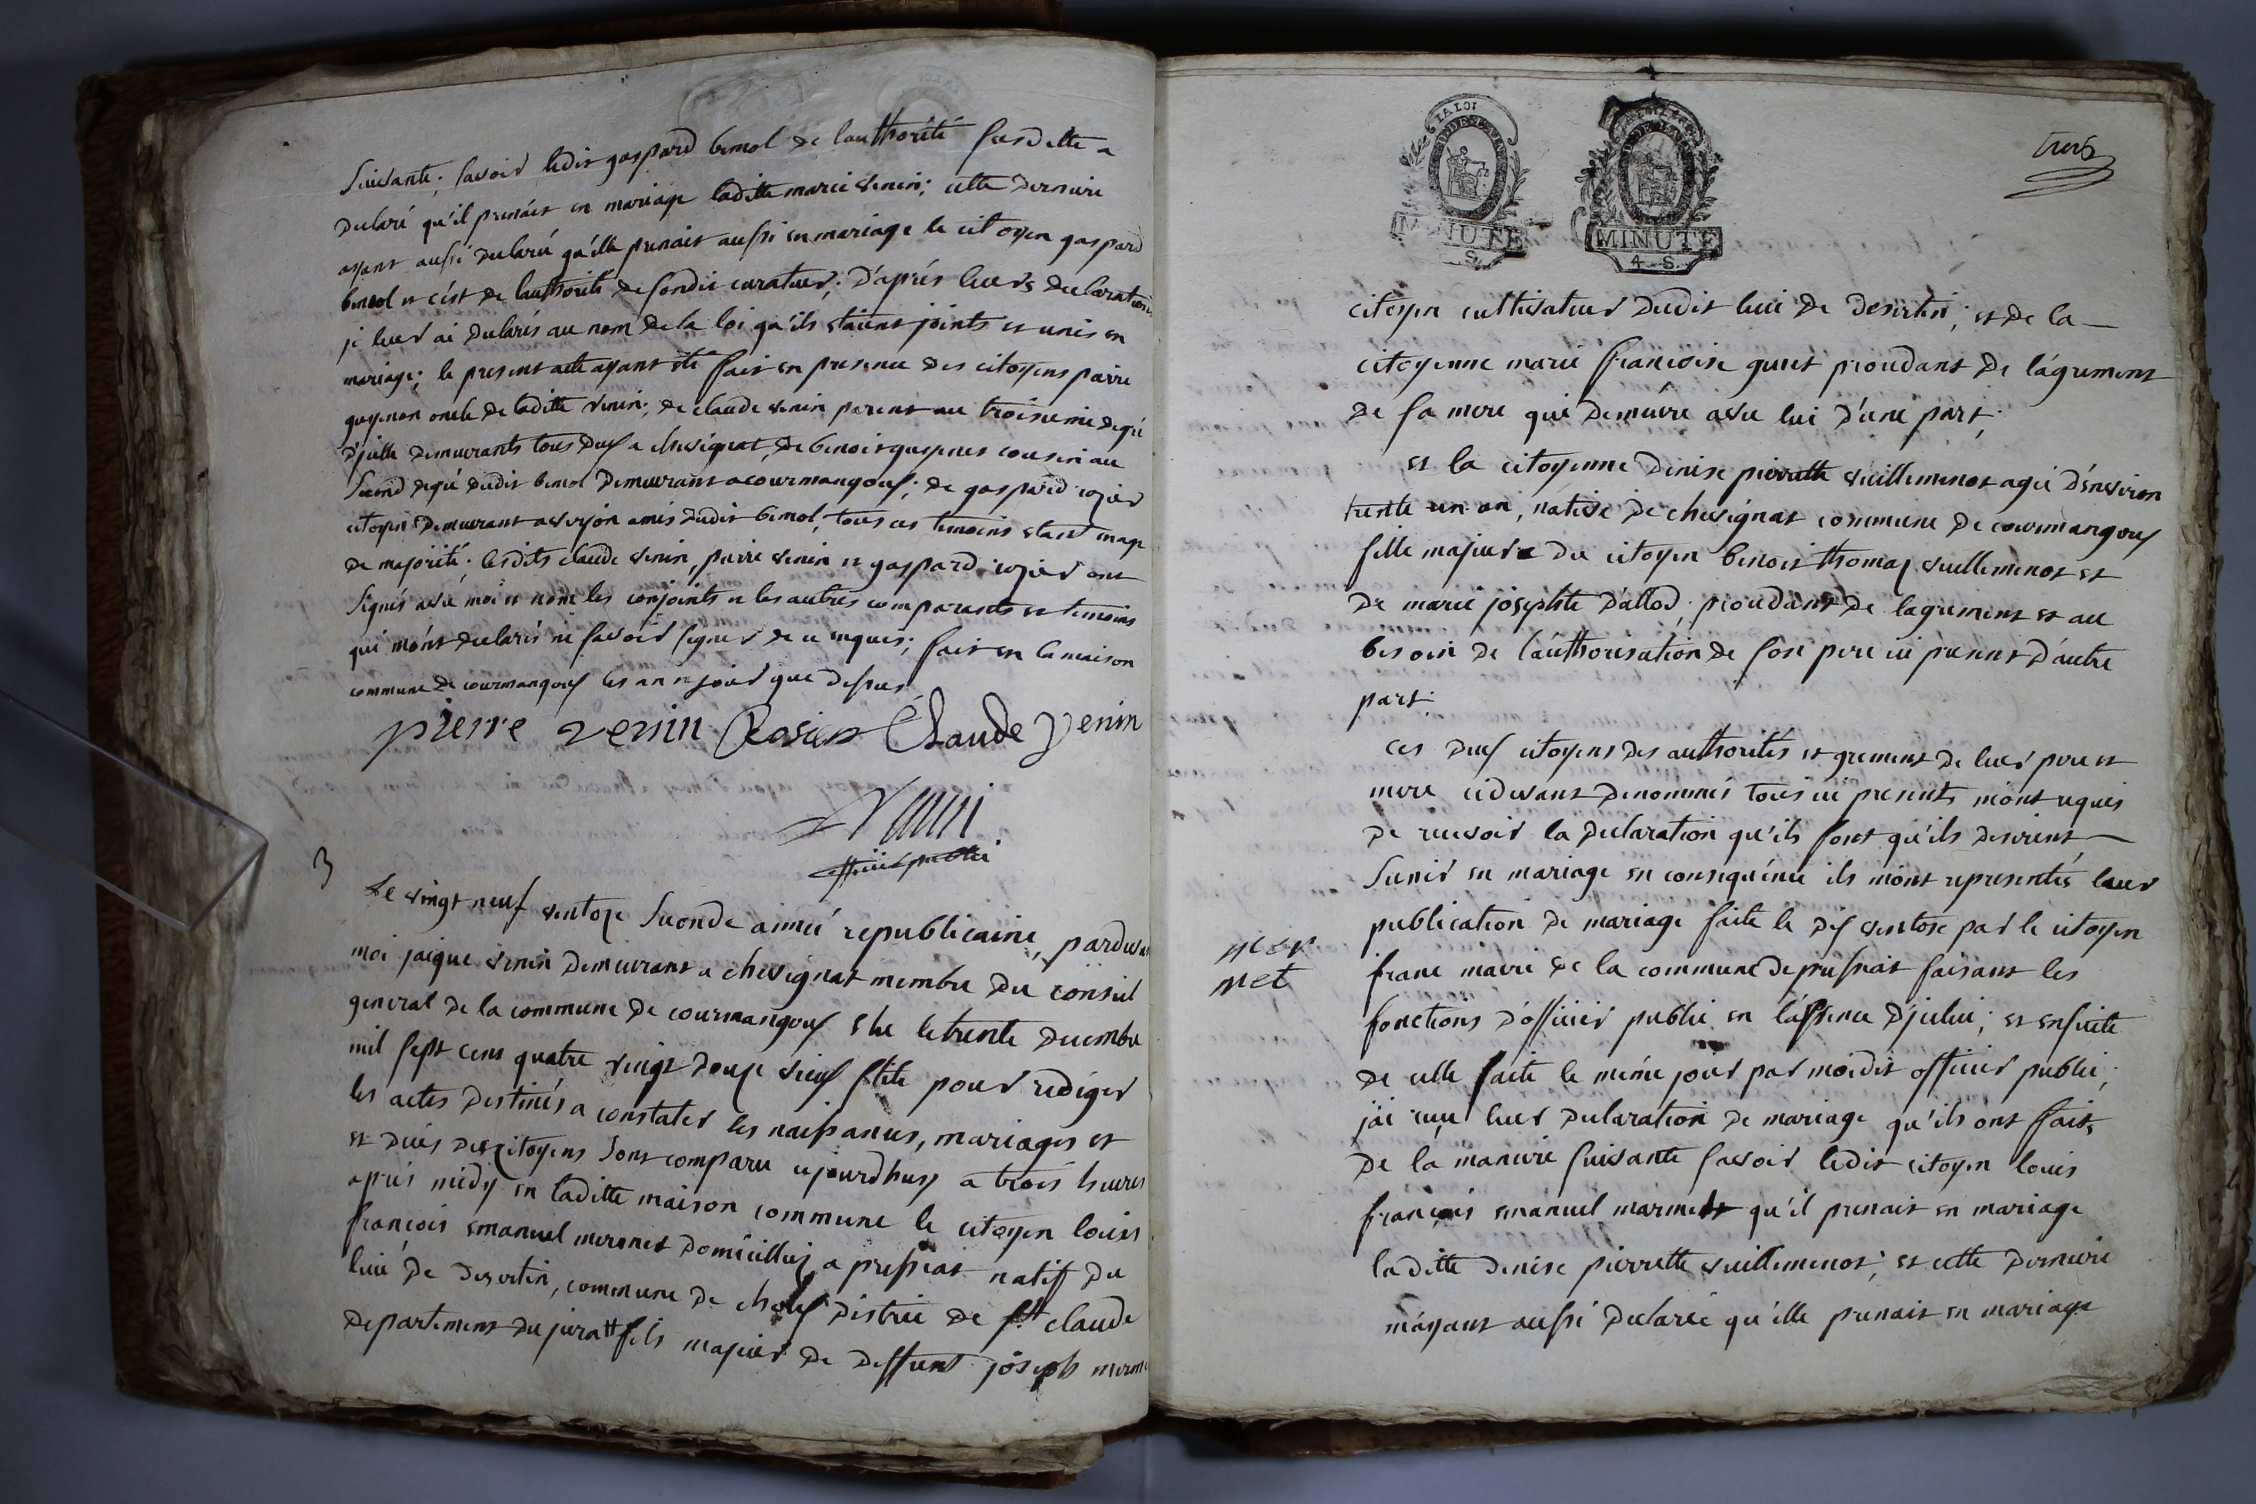 Suivante; savoir ledit gaspard bemol de lauthorité susditte a
declaré qu'il prenait en mariage laditte marie venin; cette derniere
ayant aussi declaré qu'elle prenait aussi en mariage le citoyen gaspard
bemol et c'est de lauthorité de sondit curateur; D'aprés leurs declarations
je leur ai declarés au nom de la loi qu'ils etaient joints et unis en
mariage; le present acte ayant été fait en presence des citoyens pairre
guyenon oncle de laditte venin; de claude venin parent au troisieme degré
d'jcelle demeurants tous deux a chevignat, de benoit cousin au
Second degré dudit bemol demeurant a courmangoux; de gaspard rozier
citoyen demeurant a veryon amis dudit bemol, tous ces temoins etant en age
de majorité; lesdits claude venin, pairre venin et gaspard rozier ont
Signés avec moi et non les conjoints et les autres comparants et temoins
qui m'ont declarés ne savoir signer de ce enquis; fait en la maison
commune de courmangoux les an et jour que dessus
pierre venin Rosier Claude venin
Venin
officier public
3
Le vingt neuf ventoze Seconde année republicaine, pardevant
moi jacque venin demeurant a chevignat membre du conseil
general de la commune de courmangoux elu le trente decembre
mil sept cent quatre vingt douze vieux stile pour rediger
les actes destinés a constater les naissances, mariages et
et decés des citoyens Sont comparu ajourdhuy a trois heures
aprés midy en laditte maison commune le citoyen louis
françois emanuel mermet domicillié a pressiat natif du
lieu de desertin, commune de district de st claude
departement du jura fils majeur de deffunt joseph merme
trois
LA LOI
MINUTE
S.
MINUTE
4 S.
citoyen cultivateur dudit lieu de desertin; et de la
citoyenne marie françoise guiet procedant de l'agrement
de sa mere qui demeure avec lui d'une part;
et la citoyenne denise pierrette vuillemenot agée d'environ
trente un an, native de chevignat commune de courmangoux
fille majeure du citoyen benoit thomas vuillemenot et
de marie josephte d'allod; procedant de lagrement et au
besoin de l'authorisation de son pere ici present d'autre
part.
ces deux citoyens des authorités et grement de leur pere et
mere cidevant denommés tous ici presents m'ont requis
de recevoir la declaration qu'ils font qu'ils desirent
S'unir en mariage en consequence ils m'ont representés leur
publication de mariage faite le dix ventose par le citoyen
franc maire de la commune de pressiat faisant les
mer
met
fonctions d'officier public en l'absence d'jcelui; et ensuite
de celle faite le même jour par moidit officier public;
j'ai reçu leur declaration de mariage qu'ils ont fait
de la maniere suivante savoir ledit citoyen louis
françois emanuel marmet qu'il prenait en mariage
laditte denise pierrette vuillemenot; et cette derniere
m'ayant aussi declarée qu'elle prenait en mariage